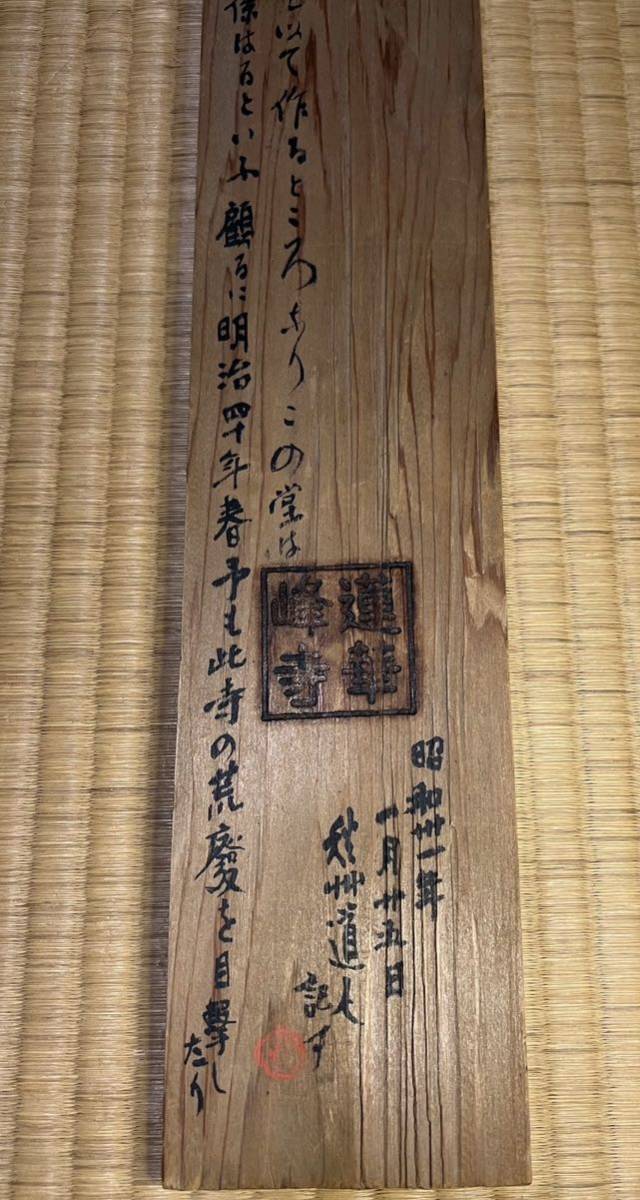 昭和卅一年
一月廿五日
秋艸道人
記す
蓮華
峰寺
以て作るところなりこの堂は
係はるといふ顧るに明治四十年春予も此寺の荒廢を目撃したり